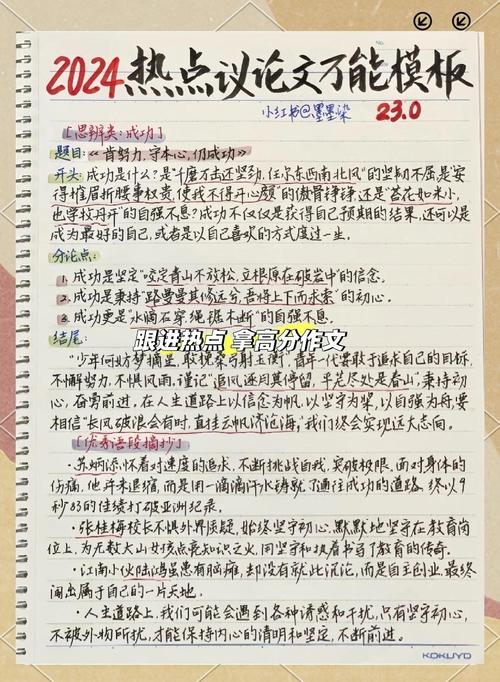 2024热点议论文万能模板
小红书@墨墨染 23.0
[思辨类:成功]
题目:《肯努力,守本心,仍成功》
开头:成功是什么?是"千磨万击还坚劲,任尔东西南北风"的坚韧不屈是"安
得摧眉折腰事权贵,使我不得开心颜"的傲骨铮铮,还是"苔花如米小,
也学牡丹开"的自强不息?成功不仅仅是获得自己预期的结果,还可以是
成为最好的自己,或者是以自己喜欢的方式度过一生。
分论点:
1. 成功是坚定"咬定青山不放松,立根原在破岩中"的信念。
2. 成功是秉持"路曼曼其修远兮,吾将上下而求索"的初心。
3. 成功更是"水滴石穿,绳锯木断"的自强不息。
跟进热点 拿高分作文
结尾:
"少年何妨梦摘星,敢挽桑弓射玉衡"青年一代要敢于追求自己的目标,
不懈努力,不惧风雨,谨记"追风逐月莫停留,平芜尽处是春山",秉持初
心,奋勇前进。在人生道路上以信念为帆,以坚守为桨,以自强为舟,要
相信"长风破浪会有时,直挂云帆济沧海,"我们终会实现远大志向。
[优秀语段摘抄]
·苏炳添怀着对速度的追求,不断挑战自我,突破极限,面对身体的
伤痛,他并未退缩,而是用一滴滴汗水铸就了通往成功的道路,终以9
秒83的佳绩打破亚洲纪录。
·张桂梅校长不惧外界质疑,始终坚守初心,默默地坚守在教育岗
位上,为无数大山女孩点亮知识之火,用坚守和执着书写了教育的传奇。
·江南小伙陆鸿虽患有脑瘫,却没有就此沉沦,而是自主创业,最终
闯出属于自己的一片天地。
·人生道路上,我们可能会遇到各种诱惑和干扰,只有坚守初心,
不被外物所扰,才能保持内心的清明和坚定,不断前进。
KOKUYO